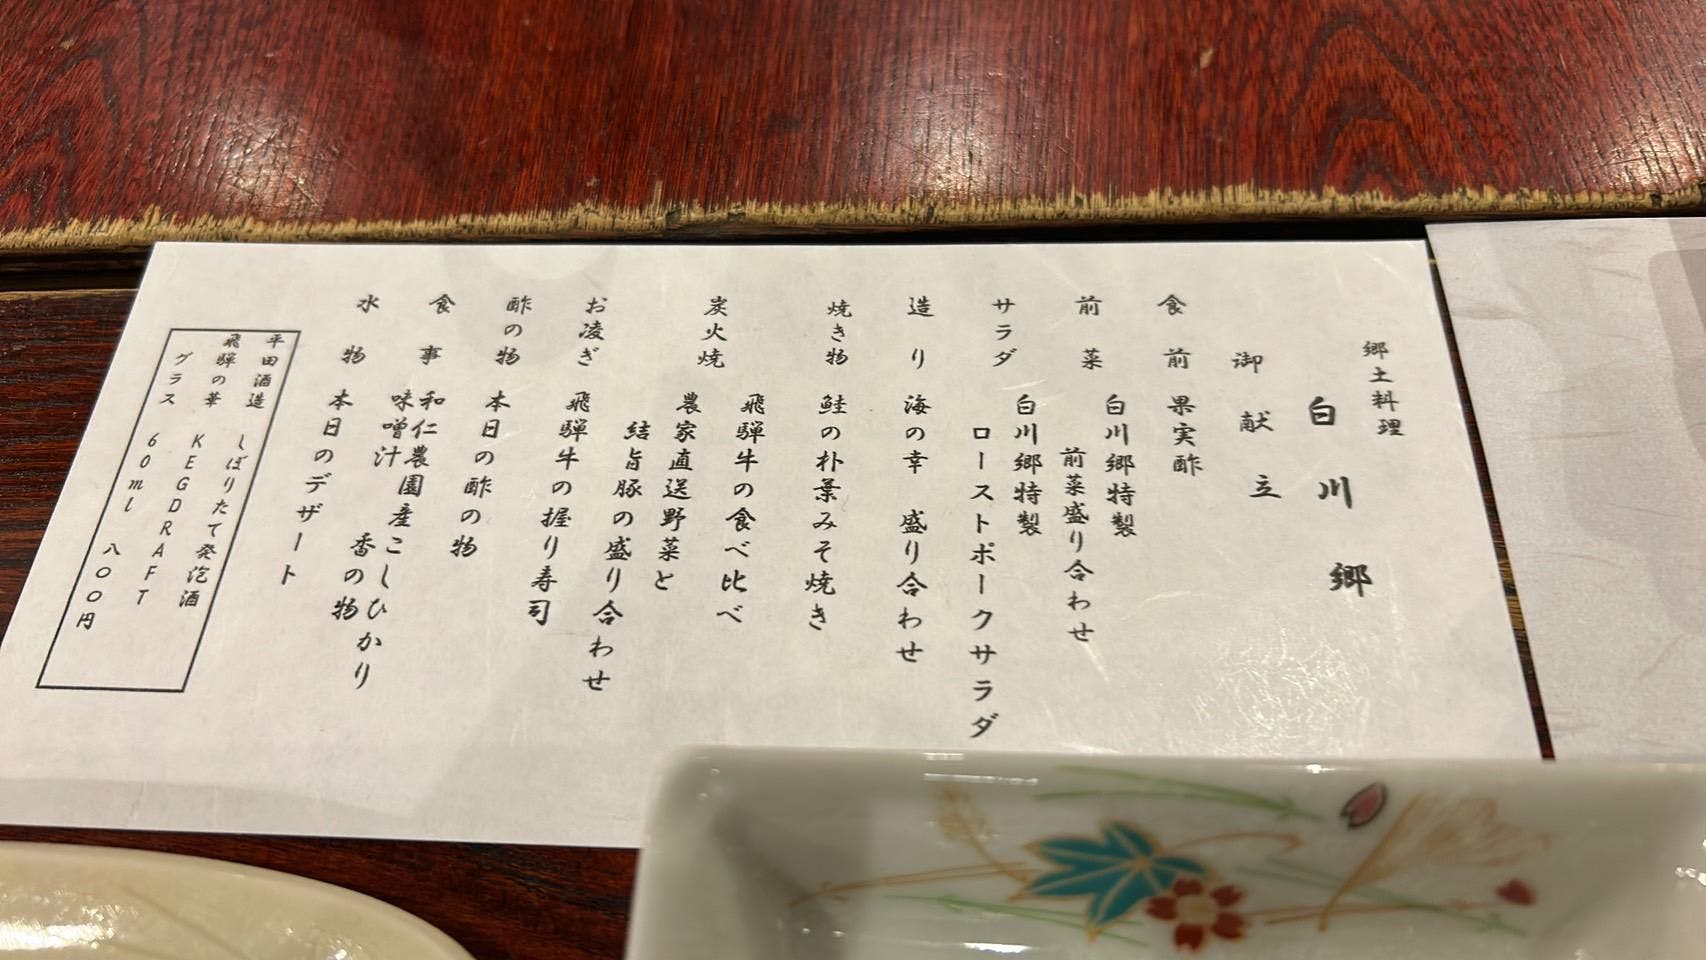 郷土料理
白川郷
御献立
食前 果実酢
前菜 白川郷特製
前菜盛り合わせ
サラダ 白川郷特製
ローストポークサラダ
造り 海の幸 盛り合わせ
焼き物 鮭の朴葉みそ焼き
炭火焼 飛騨牛の食べ比べ
農家直送野菜と
結旨豚の盛り合わせ
お凌ぎ 飛騨牛の握り寿司
酢の物 本日の酢の物
食事 和仁農園産こしひかり
味噌汁 香の物
水物 本日のデザート
平田酒造 しぼりたて発泡酒
飛騨の華 KEGDRAFT
グラス 60ml 八〇〇円